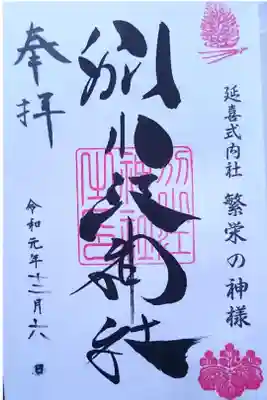 延喜式内社 繁栄の神様
別小江神社
奉拝
令和元年十二月六日